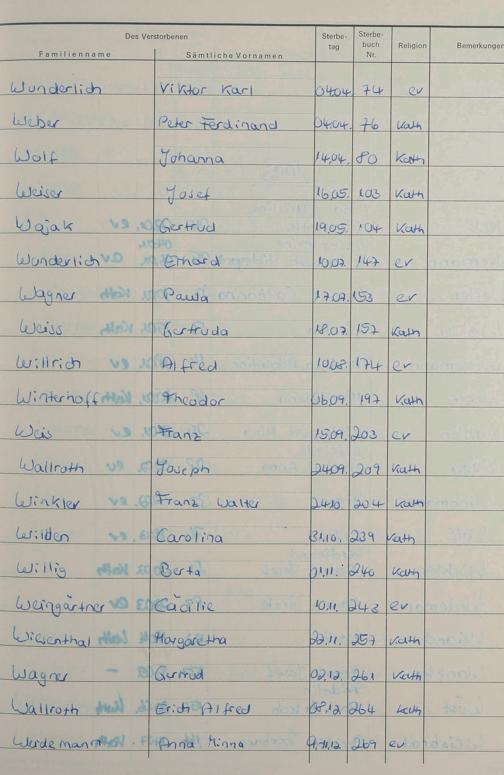 Des Verstorbenen Sterbe- Sterbe-
tag buch Religion Bemerkungen
Familienname Sämtliche Vornamen Nr.
Wunderlich Viktor Karl 04.04. 74 ev
Weber Peter Ferdinand 04.04. 76 Kath
Wolf Johanna 14.04. 80 Kath
Weiser Josef 16.05. 103 Kath
Wajak Gertrud 19.05. 104 Kath
Wunderlich Erhard 10.07. 147 ev
Wagner Paula 17.07. 153 ev
Weiss Gertruda 18.07. 157 Kath
Willrich Alfred 10.08. 174 ev
Winterhoff Theodor 06.09. 197 Kath
Weis Franz 15.09. 203 ev
Wallroth Joseph 24.09. 209 Kath
Winkler Franz Walter 24.10 204 Kath
Wilden Carolina 31.10. 239 Kath
Willig Berta 01.11. 240 Kath
Weingärtner Cäcilie 10.11. 243 ev
Wiesenthal Margaretha 22.11. 257 Kath
Wagner Gertrud 02.12. 261 Kath
Wallroth Erich Alfred 08.12. 264 Kath
Weidemann Anna Minna 269 ev